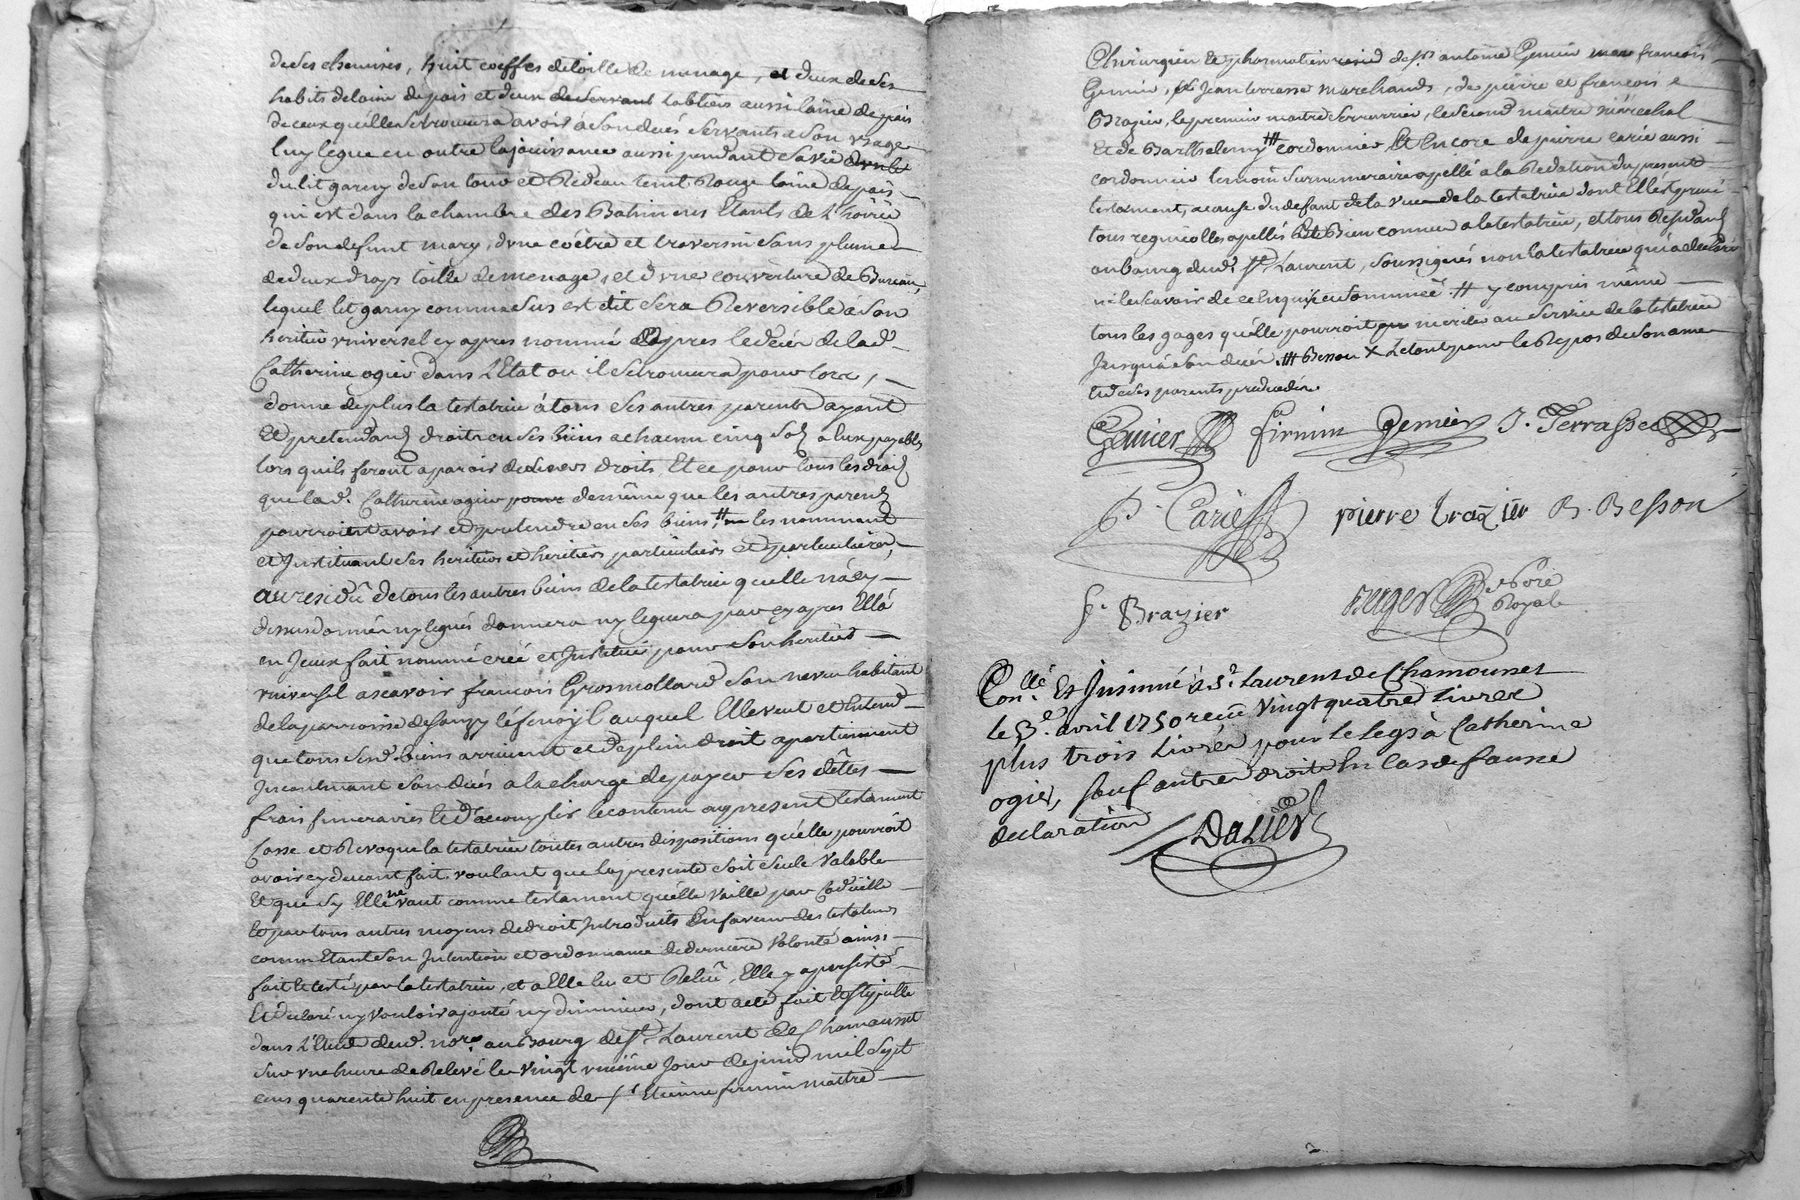 de ses chemises, huit coëffes de toille de menage, et deux de ses
habits de laine de païs et deux de servant tabliers aussi laine de païs
de ceux qu'elle se trouvera avoir a son deces servants a son usage
luy legue en outre la jouissance aussi pendant sa vie
du lit garny de son tour et Rideau teint Rouge laine de païs
qui est dans la chambre des Batimens Etants de L'hoirie
de son defunt mary, d'une coëtre et traversin sans plume
de deux draps toille de menage, et d'une couverture de Bureau,
lequel lit garny comme dessus est dit sera Reversible à son
heritier universel cy apres nommé apres le decés de lad.
Catherine ogier dans L'Etat ou il se trouvera pour lors,
donne de plus la testatrice à tous ses autres parents ayant
Et pretendant droits en ses biens a chacun cinq sols a eux payables
lors quils feront aparoir de leurs droits Et ce pour tous les droits
que lad. Catherine ogier de même que les autres parents
pourroient avoir et pretendre en ses biens # les nommant
et Instituant ses heritiers et heritieres particuliers et particulieres,
au residû de tous les autres biens de la testatrice quelle n'a cy
dessus donnés ny legués donnera ny leguera par cy apres Elle a
en Iceux fait nommé creé et Institué pour son heritier
universel ascavoir françois Grosmollard son neveu habitant
de la parroisse de auquel Elle veut et Entend
que tous sesd. biens arrivent et de plein droit apartiennent
Incontinant son decés a la charge de payer ses dêtes
frais funeraires Et d'acomplir le contenu au present testament
Casse et Revoque la testatrice toutes autres dispositions qu'elle pourroit
avoir cy devant fait voulant que la presente soit seule valable
Et que sy Elle ne vaut comme testament qu'elle vaille par Codicille
Et par tous autres moyens de droit Introduits En faveur des testateurs
comme Etant son Intention et ordonnance de derniere volonté ainsi
fait et testé par la testatrice, et a Elle lu et Relû, Elle y a persisté
Et declaré ny vouloir ajouté ny diminuer, dont acte fait Et stipullé
dans L'Etude dud. nore au Bourg de St. Laurent de Chamousset
sur une heure de Relevé le vingt unième Jour de juin mil sept
cens quarente huit en presence de sr. Etienne firmin maitre
Chirurgien Et pharmatien de sr. antoine Genier françois
Genier, Jean terrasse marchands, de pierre et françois
Brazier, le premier maitre serrurier, le second maitre maréchal
Et de Barthelemy # cordonnier Et Encore de pierre carie aussi
cordonnier temoin surnumeraire apellé a la Redation du present
testament, a cause du defaut de la vue de la testatrice dont Elle est privée
tous requis apellés Et Bien connu a la testatrice, et tous Residants
au bourg dud. St. Laurent, soussignés non la testatrice qui a declaré
ne le scavoir de ce Enquise et sommée. # y compris même
tous les gages qu'elle pourroit meriter au service de la testatrice
Jusqu'à son decés. # Besson X Le tout pour le Repos de son ame
et de ses parents predecedés.
Genier firmin Genier J. Terrasse
P. Carie pierre brazier B. Besson
f. Brazier auger Nore Royal
Conllé. Et Insinué à St. Laurent de Chamousset
le 3e. avril 1750 receu vingt quatre livres
plus trois Livres pour le legs à Catherine
ogier, sauf autres droits En cas de fausse
declaration
Dalier